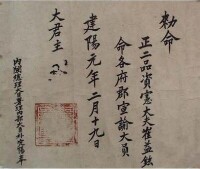 勅命
正二品資憲大夫崔益鉉
命各府郡宣諭大員
建陽元年二月十九日
大君主
內閣總理大臣署理內部大臣